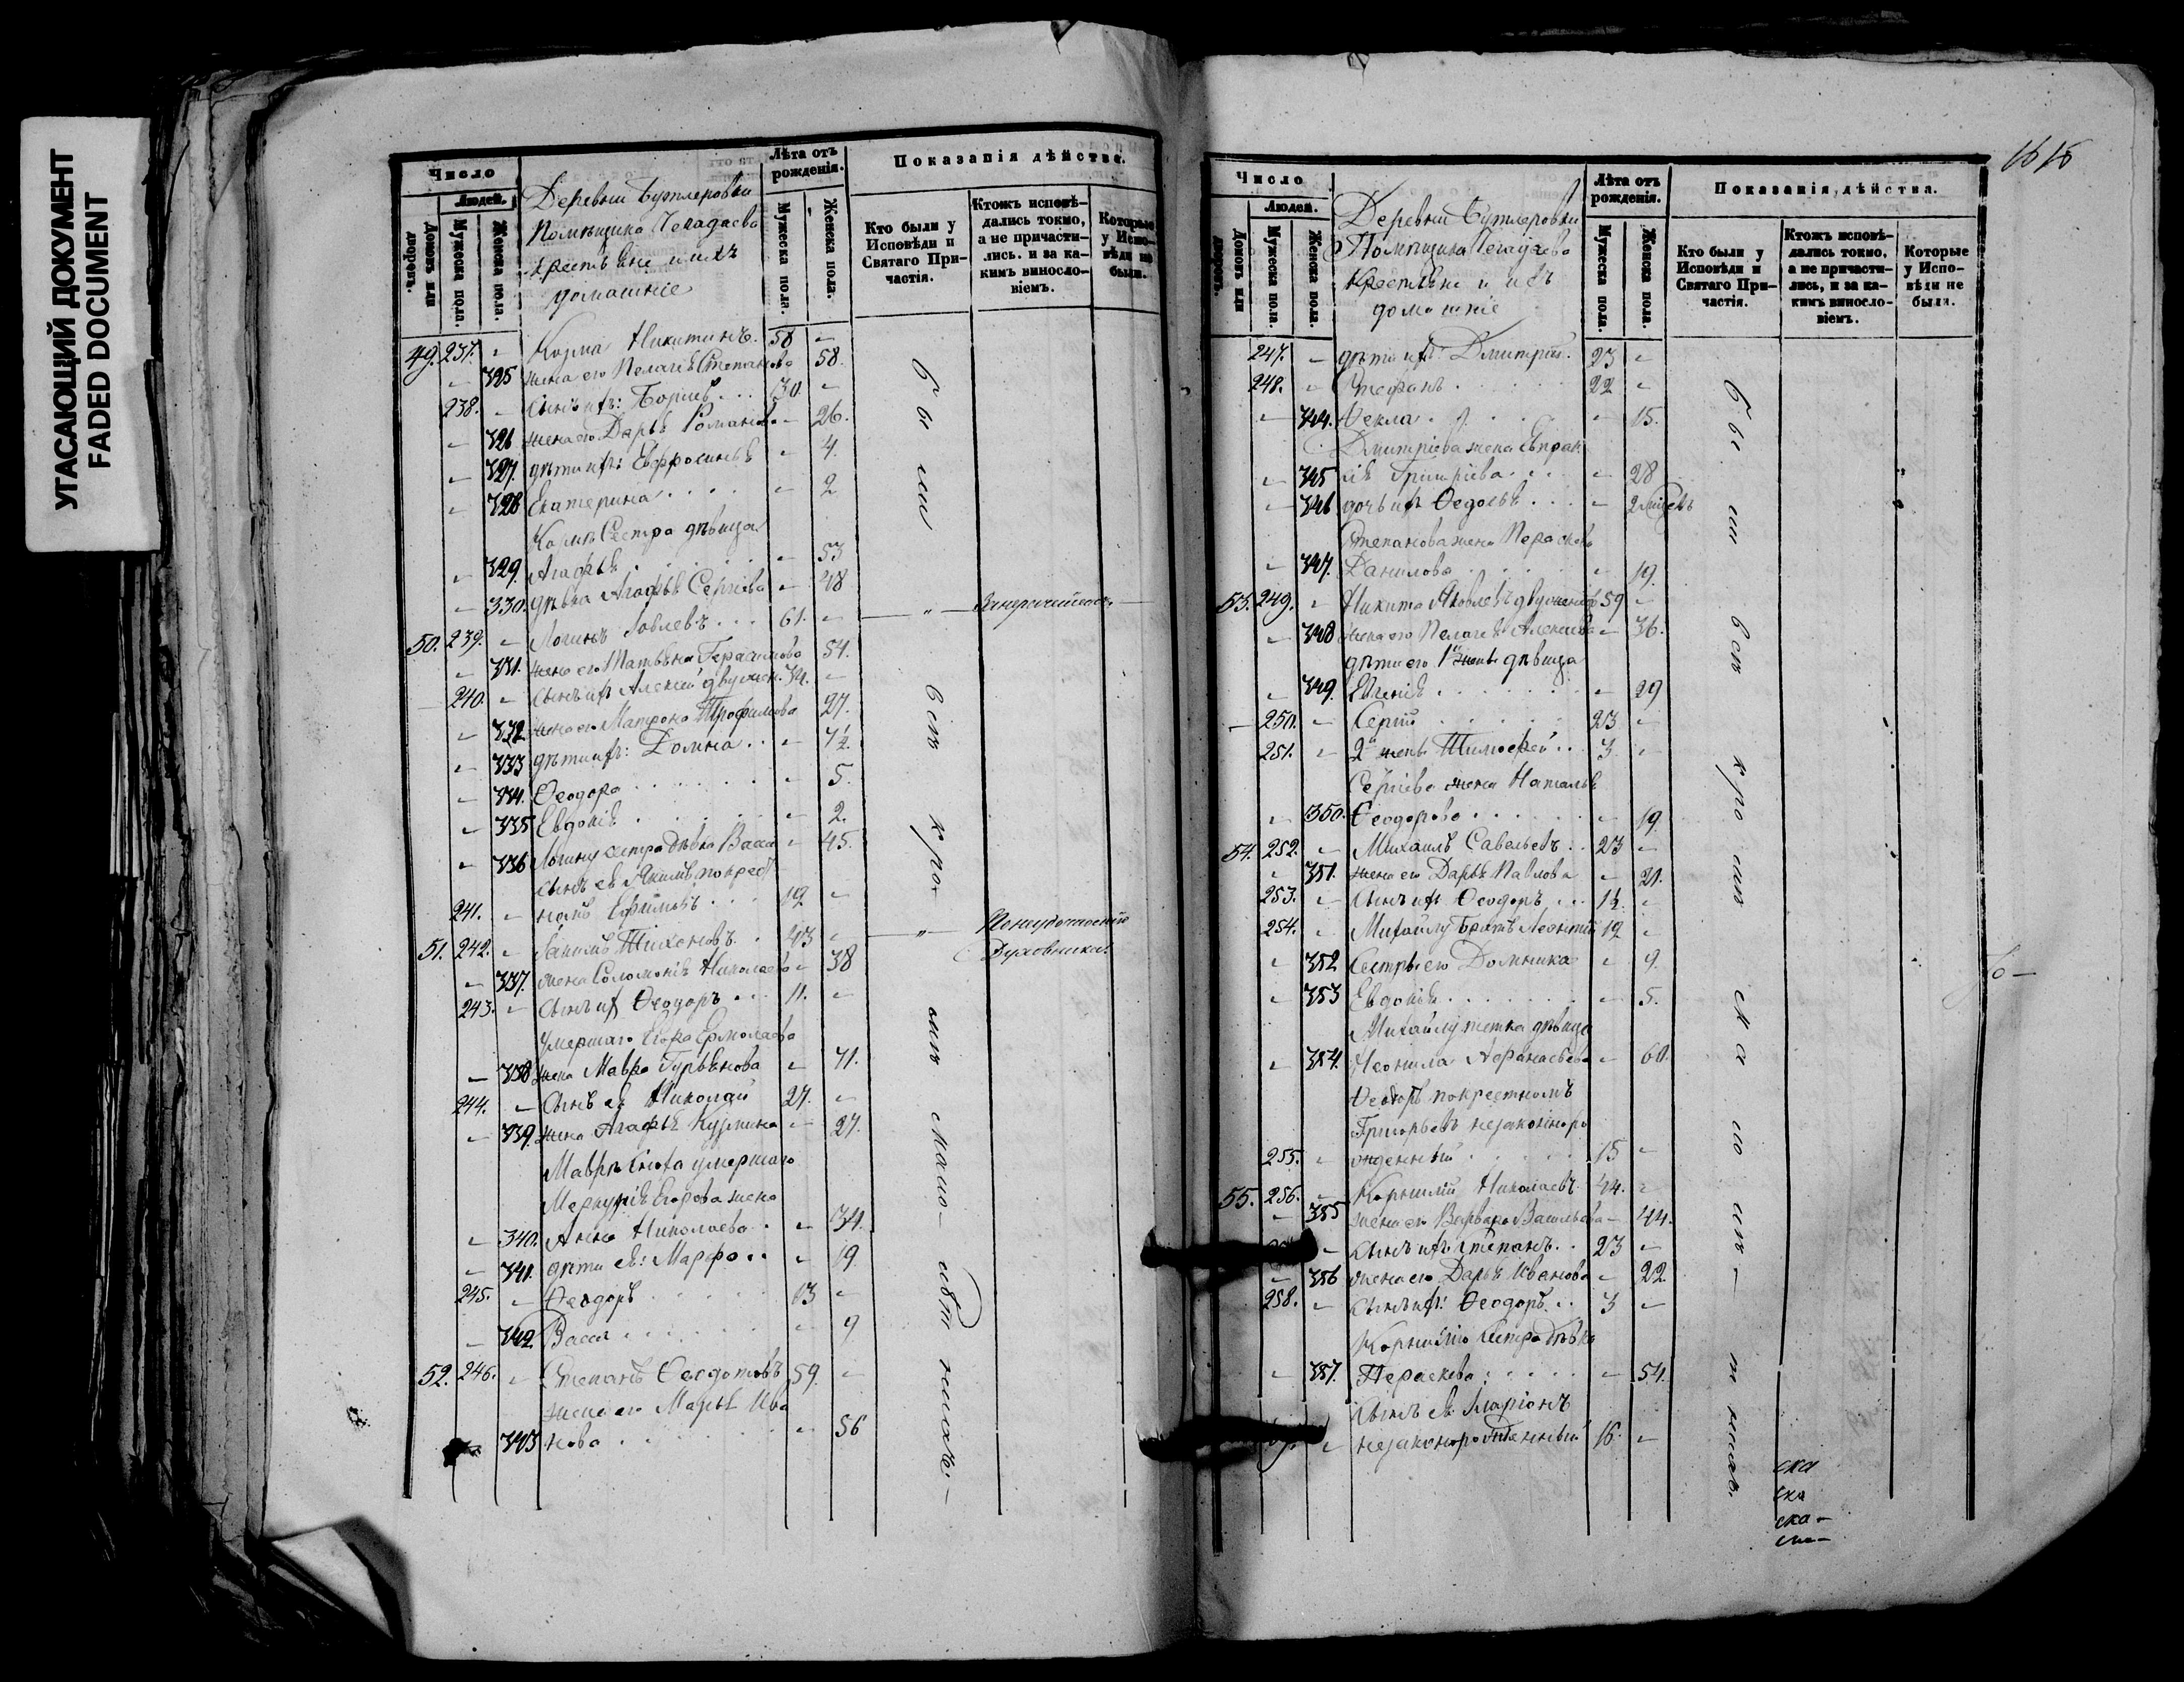 УГАСАЮЩИЙ ДОКУМЕНТ
FADED DOCUMENT
Число
Людей.
Домовъ или дворовъ.
Мужеска пола.
Женска пола.
Деревни Бутлеровки
Помѣщика Чегадаева
Крестьяне и ихъ
домашніе
Лѣта отъ рожденія.
Мужеска пола.
Женска пола.
Показанія дѣйства.
Кто были у Исповѣди и Святаго Причастія.
Ктожъ исповѣдались токмо, а не причастились. и за какимъ винословіемъ.
Которые у Исповѣди не были.
49. 237. - Козма Никитинъ. 58 -
- 325 жена его Пелагія Степанова 58.
238. - сынъ ихъ: Борисъ... 30. -
- 326 жена его Дарья Романова - 26.
- 327. дѣти ихъ: Евфросинія - 4.
- 328 Екатерина.... - 2
Козмѣ Сестра дѣвица
- 329. Агафья - 53
- 330. дѣвка Агафья Сергіева - 48
50. 239. - Логинъ Іовлевъ... 61. -
- 331. жена его Татьяна Герасимова 54.
240. - сынъ ихъ Алексій двужен. 34. -
- 332. жена его Матрона Трофимова 27.
- 333 дѣти ихъ: Домна.. - 7½.
- 334. Ѳеодора - 5.
- 335 Евдокія - 2.
- 336 Логину сестра дѣвка Васса - 45.
сынъ ея Акимъ по крест
241. - ному Ефимовъ... 19 -
51. 242. - Тихоновъ. 43 -
- 337. жена Соломонія Николаева - 38
243. - сынъ ихъ Ѳеодоръ... 11. -
умершаго Егора Ермолаева
- 338 жена Мавра Гурьянова - 71.
244. - сынъ ея Николай 27. -
- 339. жена Агафья Кузмина - 27.
Мавры сноха умершаго
Меркурія Егорова жена
- 340. Анна Николаева. - 34.
- 341. дѣти ея: Марфа.. - 19.
245. - Ѳеодоръ 13 -
- 342. Васса - 9
52. 246. - Степанъ Ѳеодотовъ 59. -
жена его Марья Ива
343 нова - 56
Были
всѣ
кро-
мѣ
мало-
лѣт
нихъ.-
Духовника
1616
Число
Людей.
Домовъ или дворовъ.
Мужеска пола.
Женска пола.
Деревни Бутлеровки
Помѣщика Чегадаева
Крестьяне и ихъ
домашніе
Лѣта отъ рожденія.
Мужеска пола.
Женска пола.
Показанія дѣйства.
Кто были у Исповѣди и Святаго Причастія.
Ктожъ исповѣдались токмо, а не причастились, и за какимъ винословіемъ.
Которые у Исповѣди не были.
247. - дѣти ихъ: Дмитрій. 23 -
248. - Стефанъ 22 -
- 344. Ѳекла - 15.
Дмитріева жена Евпрак
- 345 сія Григоріева - 28
- 346 дочь ихъ Ѳедосья... - 2 мѣсяцъ
Степанова жена Параскева
- 347. Данилова - 19.
53. 249. - Никита Яковлевъ двуженецъ 59 -
- 348 жена его Пелагея Алексѣева - 36.
дѣти его 1й жены дѣвица
- 349. Евгенія - 29
250. - Сергій 23 -
251. - 2й жены Тимофей.. 3 -
Сергіева жена Наталья
- 350. Ѳеодорова - 19.
54. 252. - Михаилъ Савельевъ.. 23 -
- 351. жена его Дарья Павлова - 21.
253. - сынъ ихъ Ѳеодоръ... 1½. -
254. - Михайлу братъ Леонтій 19 -
- 352 Сестры его Домника - 9.
- 353 Евдокія - 5.
Михайлу тетка дѣвица
- 354. Неонила Афанасьева - 60.
Ѳеодоръ по крестному
Григорьевъ незаконноро
255. - жденный 15 -
55. 256. - Корнилій Николаевъ 44. -
- 355 жена его Варвара Васильева - 44.
- сынъ ихъ Степанъ.. 23 -
- 356 жена его Дарья Иванова - 22.
258. - сынъ ихъ: Ѳеодоръ.. 3 -
Корнилію Сестра дѣвка
- 357. Параскева - 54.
сынъ ея Иларіонъ
- незаконорожденный 16. -
Бы
ли
всѣ
кро
мѣ
ма
ло
лѣ-
т
нихъ.
ска
ска
ска-